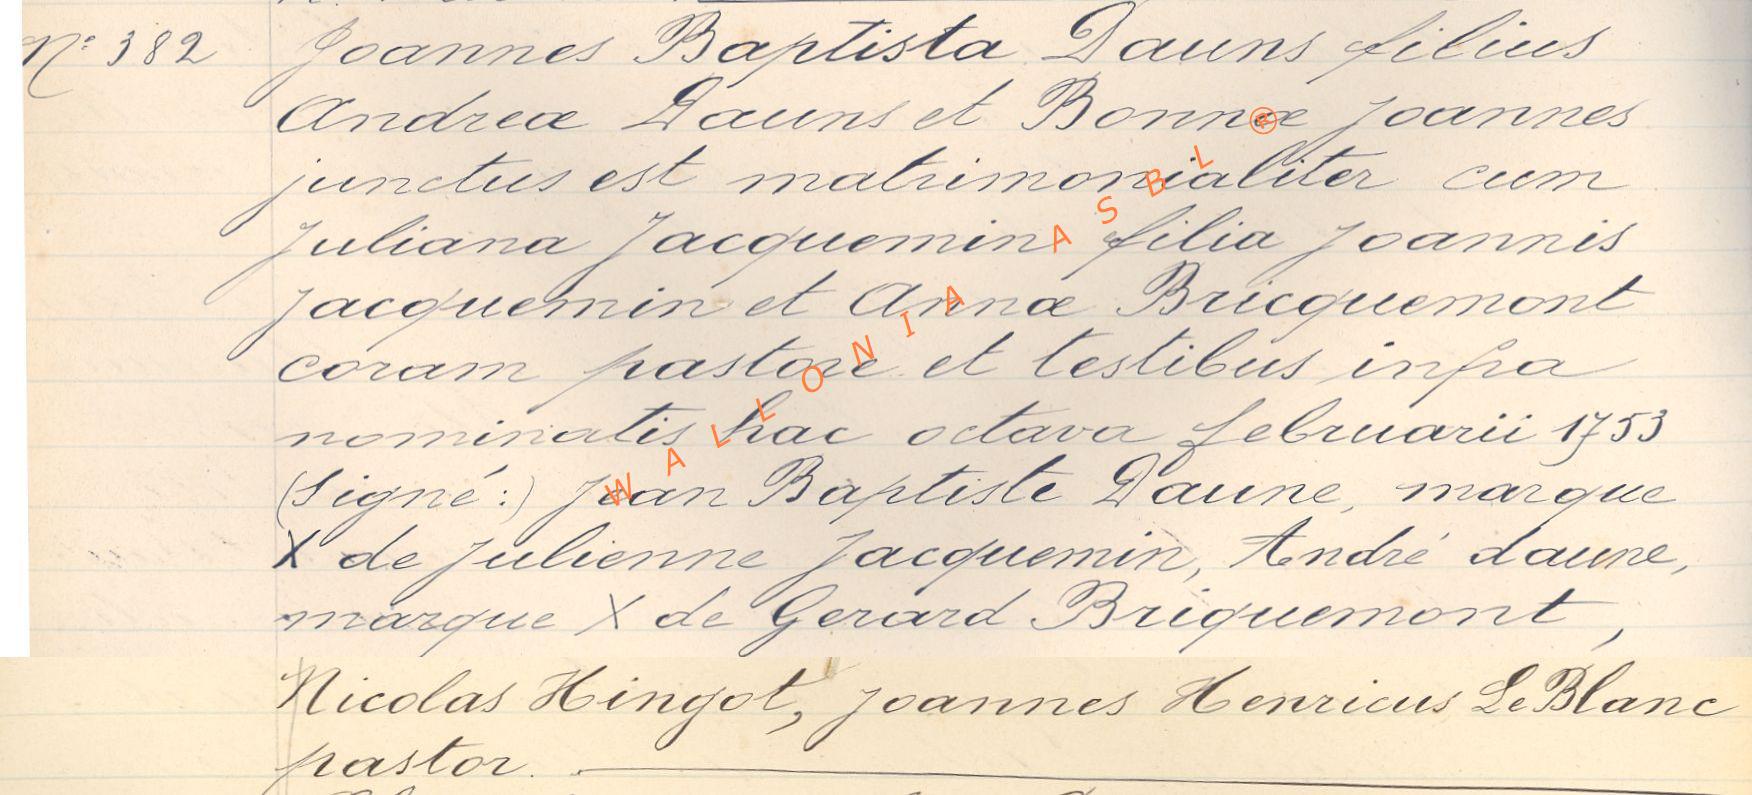 N° 382 Joannes Baptista Dauns filius
Andreæ Dauns et Bonnæ Joannes
junctus est matrimonialiter cum
Juliana Jacquemin filia Joannis
Jacquemin et Annæ Bricquemont
coram pastore et testibus infra
nominatis hac octava februarii 1753
(Signé:) Jean Baptiste Daune, marque
X de Julienne Jacquemin, André daune,
marque X de Gerard Briquemont,
Nicolas Hingot, Joannes Henricus Le Blanc
pastor.
WALLONIA ASBL ®